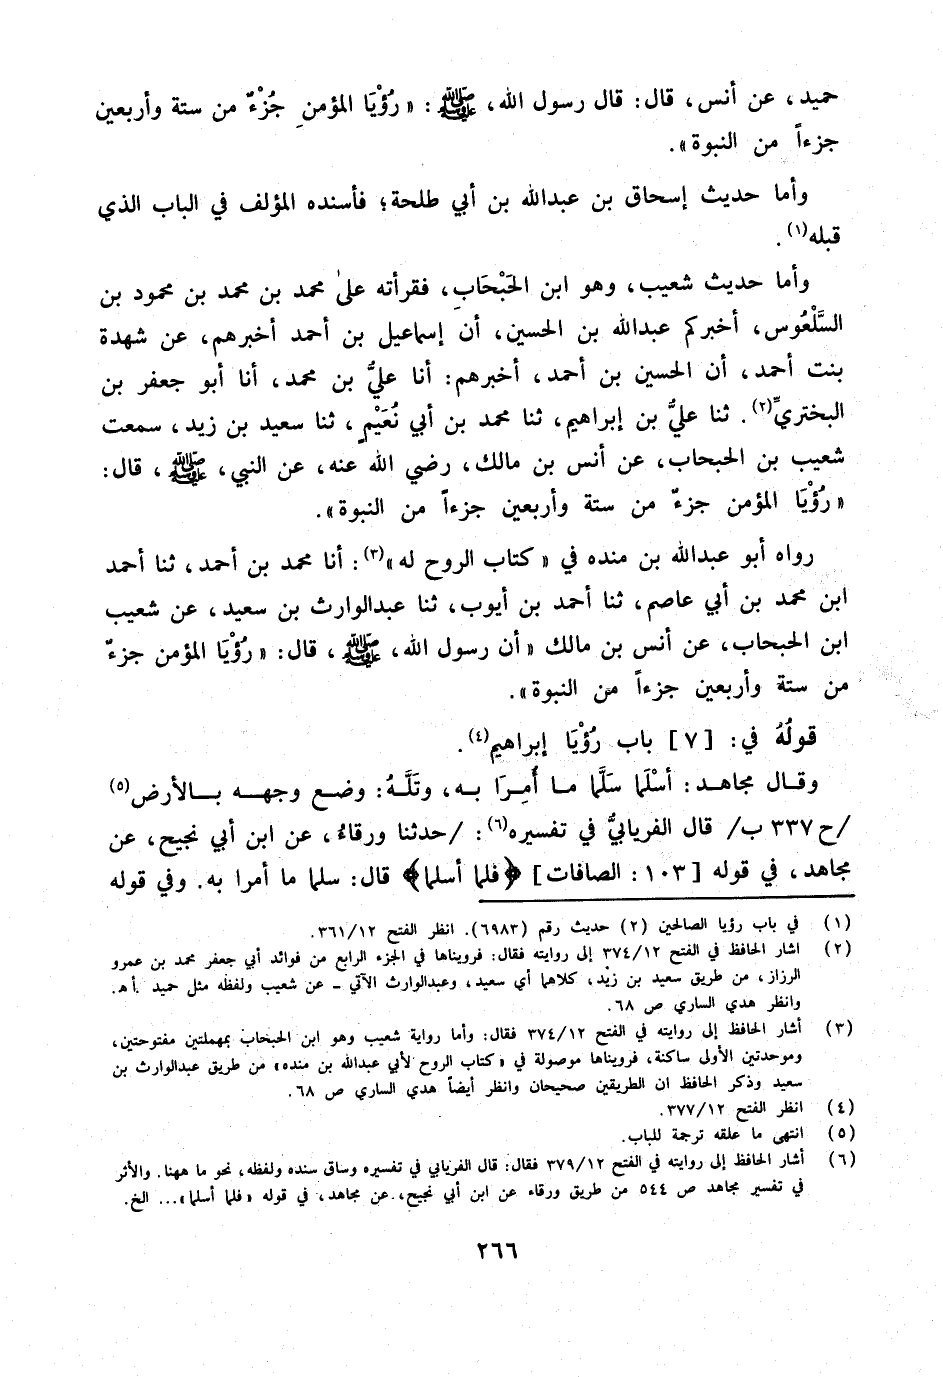 حميد، عن أنس، قال: قال رسول الله، ﷺ: «رُؤْيَا المؤمنِ جُزْءٌ من ستة وأربعين
جزءاً من النبوة».
وأما حديث إسحاق بن عبدالله بن أبي طلحة؛ فأسنده المؤلف في الباب الذي
قبله(١).
وأما حديث شعيب، وهو ابن الحَبْحَابِ، فقرأته علىٰ محمد بن محمد بن محمود بن
السَّلْعُوس، أخبركم عبدالله بن الحسين، أن إسماعيل بن أحمد أخبرهم، عن شهدة
بنت أحمد، أن الحسين بن أحمد، أخبرهم: أنا عليُّ بن محمد، أنا أبو جعفر بن
البختريِّ(٢). ثنا عليُّ بن إبراهيم، ثنا محمد بن أبي نُعَيْمٍ، ثنا سعيد بن زيد، سمعت
شعيب بن الحبحاب، عن أنس بن مالك، رضي الله عنه، عن النبي، ﷺ، قال:
«رُؤْيَا المؤمن جزءٌ من ستة وأربعين جزءاً من النبوة».
رواه أبو عبدالله بن منده في «كتاب الروح له»(٣): أنا محمد بن أحمد، ثنا أحمد
ابن محمد بن أبي عاصم، ثنا أحمد بن أيوب، ثنا عبدالوارث بن سعيد، عن شعيب
ابن الحبحاب، عن أنس بن مالك «أن رسول الله، ﷺ، قال: «رُؤْيَا المؤمن جزءٌ
من ستة وأربعين جزءاً من النبوة».
قولُهُ في: [٧] باب رُؤْيَا إبراهيم(٤).
وقال مجاهد: أسْلَما سَلَّما ما أُمِرَا به، وتَلَّهُ: وضع وجهه بالأرض(٥)
/ح٣٣٧ ب/ قال الفريابيُّ في تفسيره(٦): /حدثنا ورقاءُ، عن ابن أبي نجيح، عن
مجاهد، في قوله [١٠٣: الصافات] ﴿فلما أسلما﴾ قال: سلما ما أمرا به. وفي قوله
(١) في باب رؤيا الصالحين (٢) حديث رقم (٦٩٨٣). انظر الفتح ٣٦١/١٢.
(٢) اشار الحافظ في الفتح ٣٧٤/١٢ إلى روايته فقال: فرويناها في الجزء الرابع من فوائد أبي جعفر محمد بن عمرو
الرزاز، من طريق سعيد بن زيْد، كلاهما أي سعيد، وعبدالوارث الآتي - عن شعيب ولفظه مثل حميد أ.هـ.
وانظر هدي الساري ص ٦٨.
(٣) أشار الحافظ إلى روايته في الفتح ٣٧٤/١٢ فقال: وأما رواية شعيب وهو ابن الحبحاب بمهملتين مفتوحتين،
وموحدتين الأولى ساكنة، فرويناها موصولة في «كتاب الروح لأبي عبدالله بن منده» من طريق عبدالوارث بن
سعيد وذكر الحافظ ان الطريقين صحيحان وانظر أيضاً هدي الساري ص ٦٨.
(٤) انظر الفتح ٣٧٧/١٢.
(٥) انتهى ما علقه ترجمة للباب.
(٦) أشار الحافظ إلى روايته في الفتح ٣٧٩/١٢ فقال: قال الفريابي في تفسيره وساق سنده ولفظه، نحو ما ههنا. والأثر
في تفسير مجاهد ص ٥٤٤ من طريق ورقاء عن ابن أبي نجيح، عن مجاهد، في قوله «فلما أسلما»... الخ.
٢٦٦